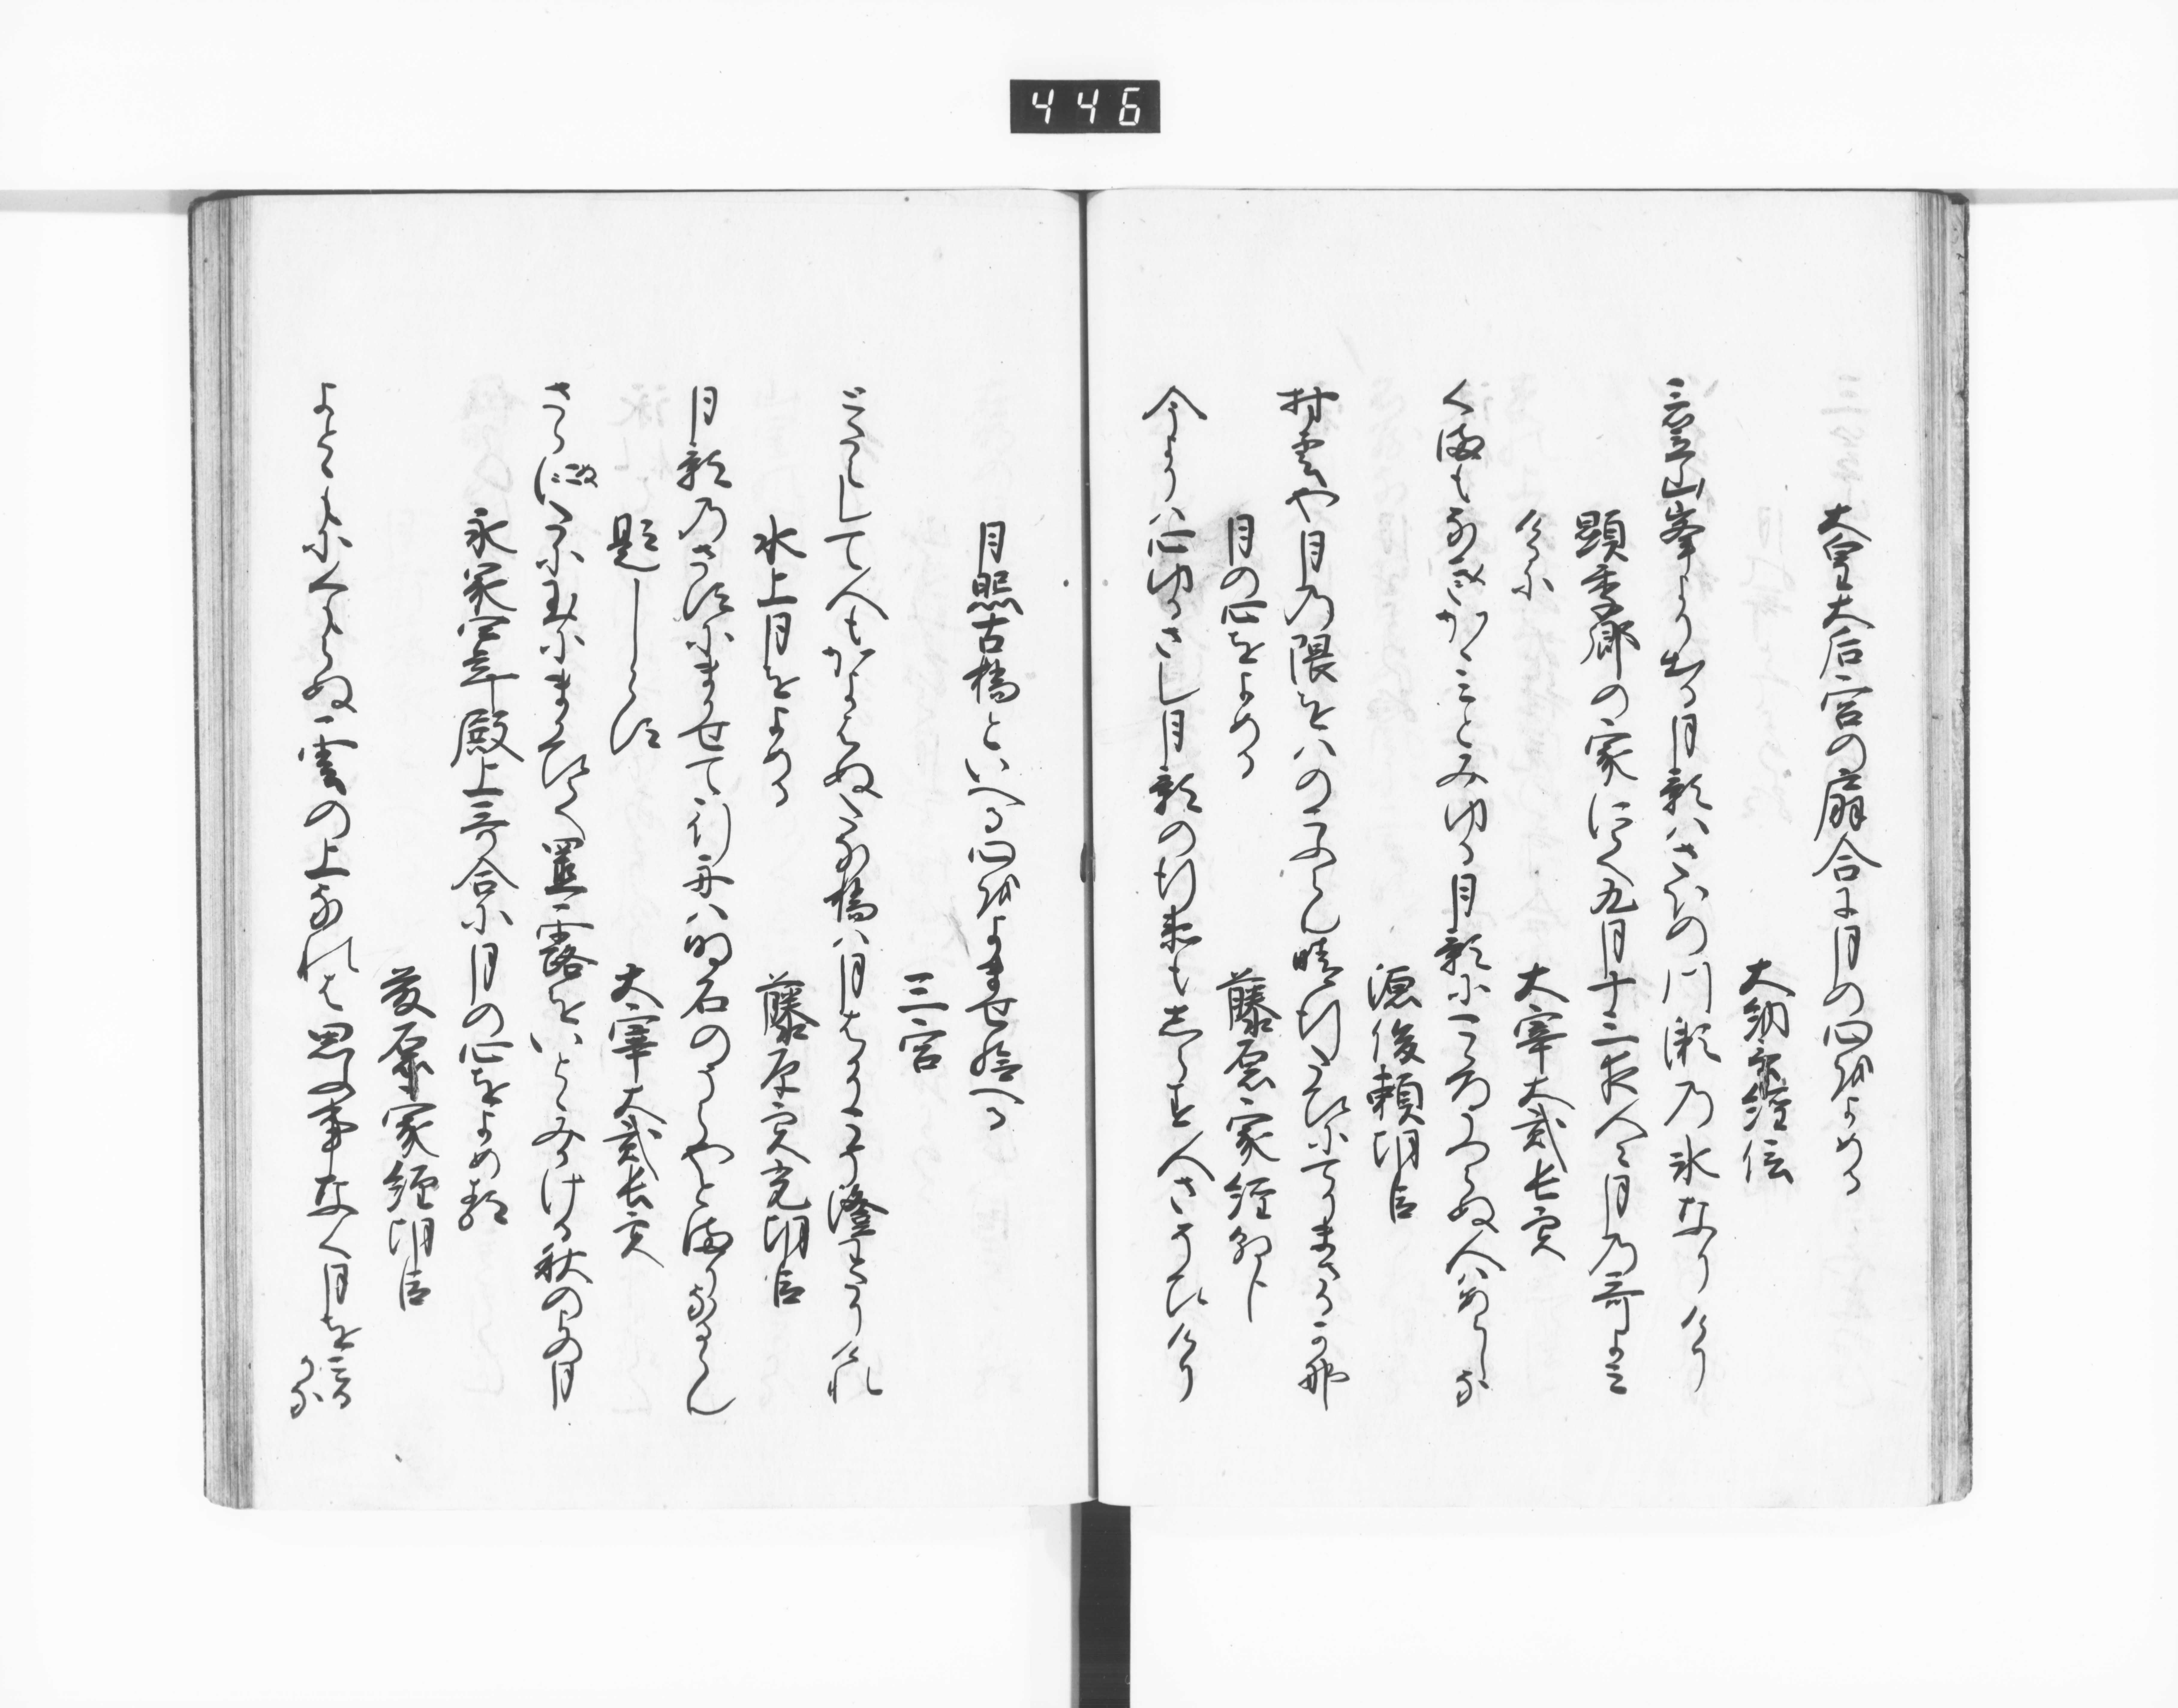 446
大皇大后宮の扇合に月の心をよめる
大納言経信
三笠山峯より出る月影はさほの川瀬の氷なりけり
顕季卿の家にて九月十三夜人々月の哥よみ
けるに
大宰大貳長実
くまもなきかゝみとみゆる月影にこゝろうつらぬ人はあらしな
源俊頼朝臣
村雲や月の隈をはのこふらん晴行たひにてりまさる哉
月の心をよめる
藤原家経朝臣
今よりは心ゆるさし月影の行末もしらす人さそひけり
月照古橋といへる心をよませ給へる
三宮
とたえして人もかよはぬたな橋は月はかりこそ澄わたりけれ
水上月をよめる
藤原実光朝臣
月影のさすにまかせて行舟は明石のうらやとまりなるらん
題しらす
大宰大貳長実
さらぬたに玉にまかひて置露をいとゝみかける秋のよの月
永承四年殿上哥合に月の心をよめる
藤原家経朝臣
よとゝもにくもらぬ雲の上なれは思ふ事なく月を見るかな